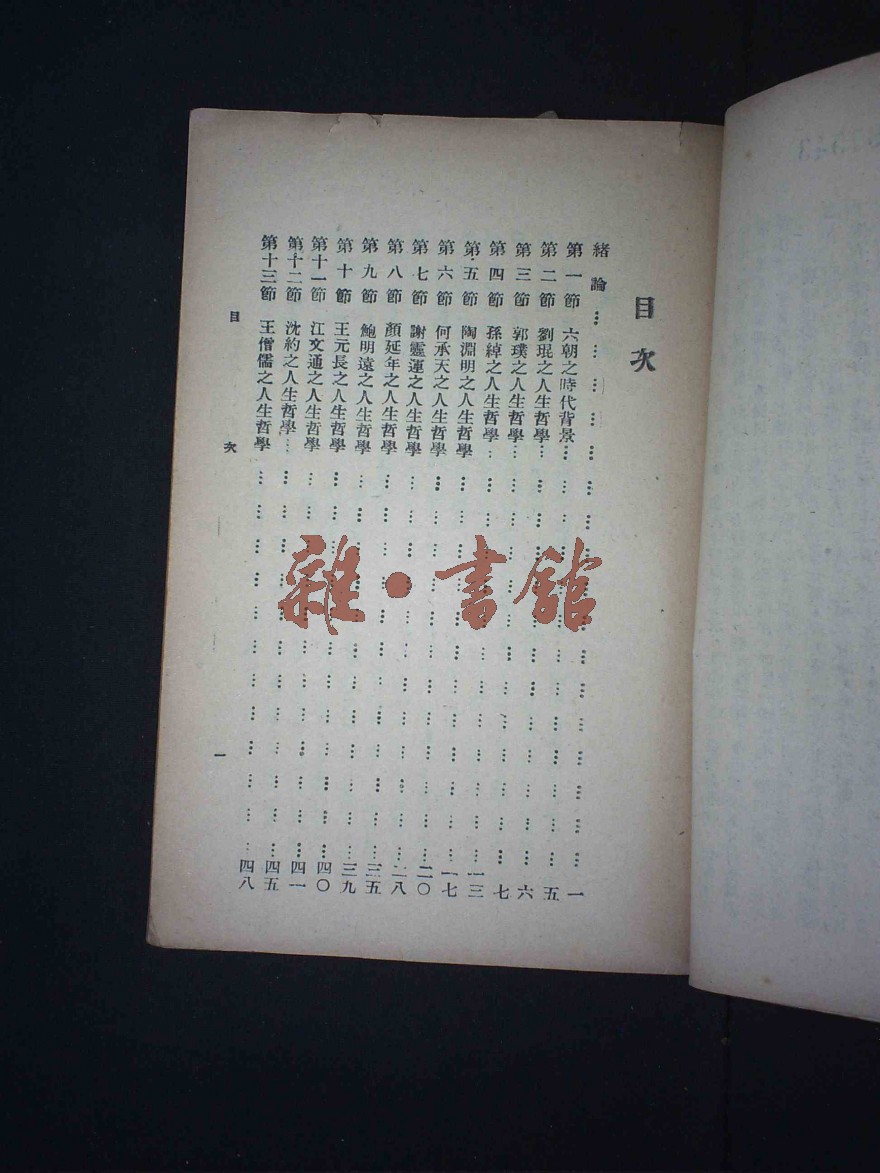 目次
緒論………………一
第一節 六朝之時代背景………………五
第二節 劉琨之人生哲學………………六
第三節 郭璞之人生哲學………………七
第四節 孫綽之人生哲學………………一三
第五節 陶淵明之人生哲學………………一七
第六節 何承天之人生哲學………………二〇
第七節 謝靈運之人生哲學………………二八
第八節 顏延年之人生哲學………………三五
第九節 鮑明遠之人生哲學………………三九
第十節 王元長之人生哲學………………四〇
第十一節 江文通之人生哲學………………四一
第十二節 沈約之人生哲學………………四五
第十三節 王僧儒之人生哲學………………四八
目次
一
雜·書館